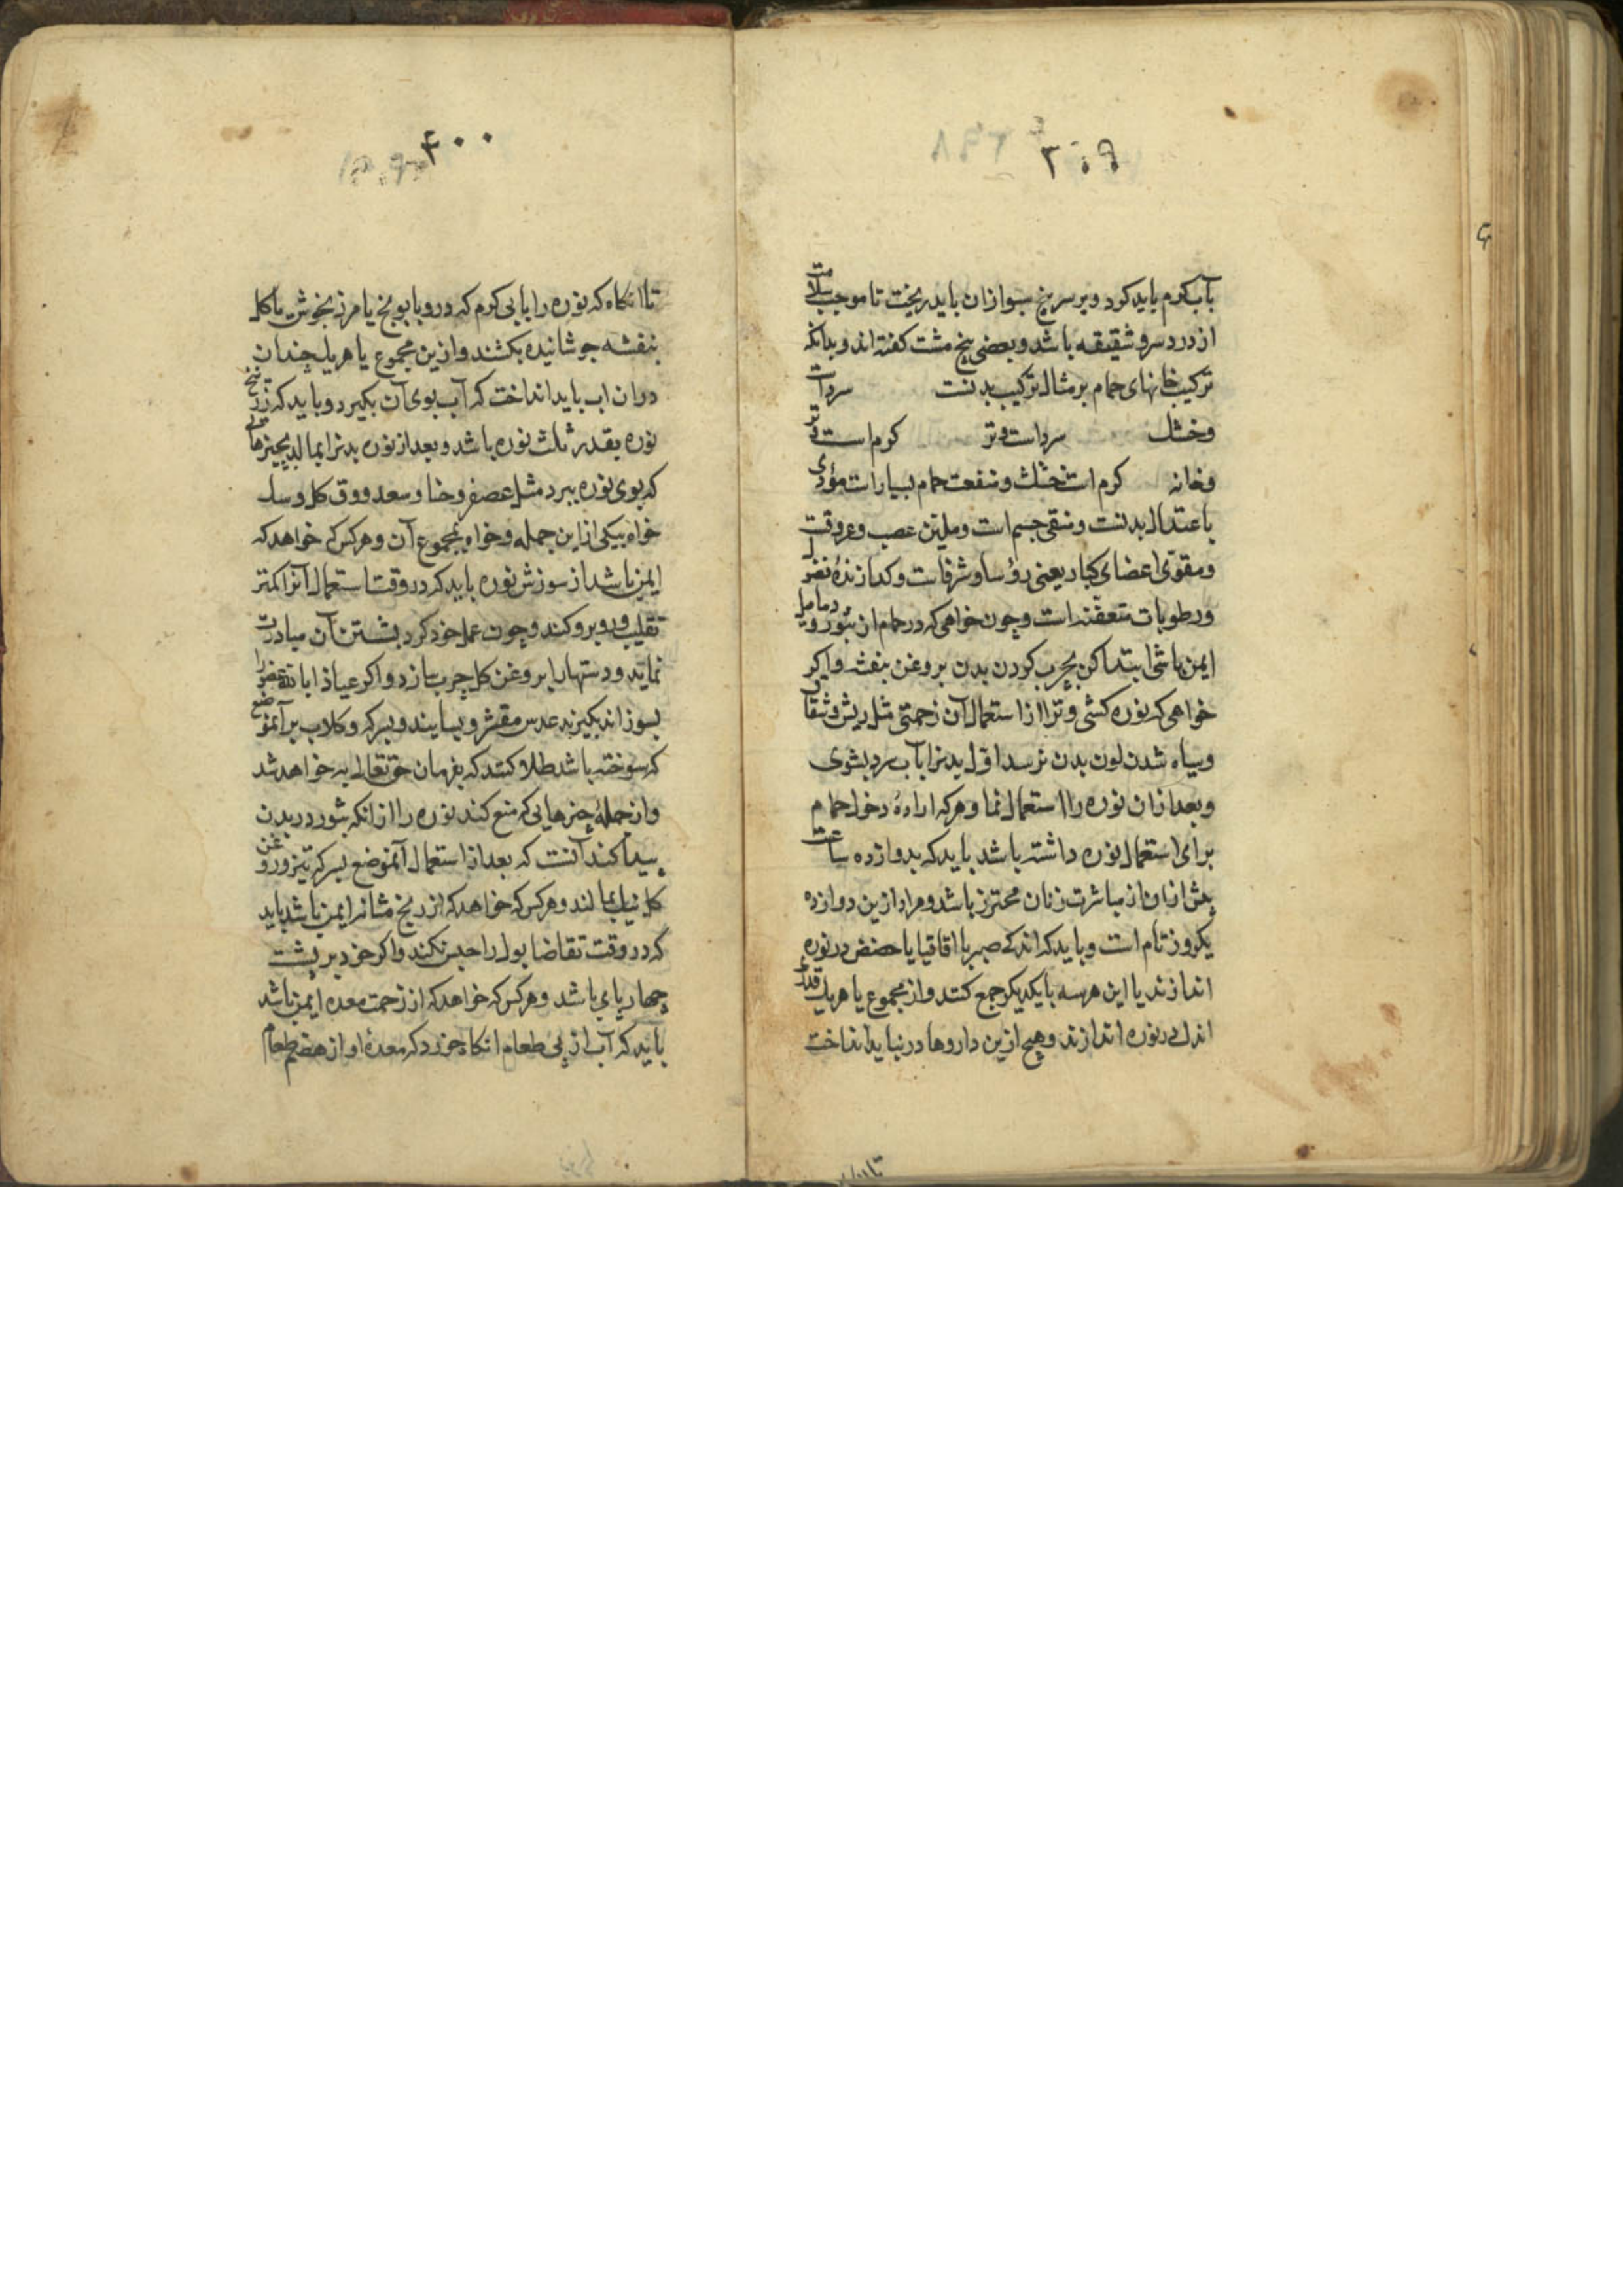 ۳۰۹
بآب گرم باید کرد و بر سر پنج سبو ازان باید ریخت تا موجب سلامت
از درد سر و شقیقه باشد و بعضی پنج مشت کفته اند و بدانکه
ترکیب خانهای حمام بر مثال ترکیب بدنست سردات
وخشک سرداست وتر کرم است وتر
وخانه کرم است خشک ومنفعت حمام بسیارات مؤدی
باعتدال بدنست ومنقی جسم است وملین عصب وعروقت
ومقوّی اعضای کبار یعنی رؤسا وشرفاست وکدازندهٔ فضول
ورطوبات متعفّنه است وچون خواهی که در حمام از بثور ودمامیل
ایمن باشی ابتدا کن بچرب کردن بدن بروغن بنفشه واکر
خواهی که نوره کشی وترا از استعمال آن زحمتی مثل ریش وشقاق
وسیاه شدن لون بدن نرسد اوّل بدنرا بآب سرد بشوی
وبعد ازان نوره را استعمال نما وهرکه ارادهٔ دخول حمام
برای استعمال نوره داشته باشد باید که بدوازده ساعت
پیش ازان از مباشرت زنان محترز باشد ومراد ازین دوازده
یکروز تام است وباید که اندکی صبر یا اقاقیا یا حضض در نوره
اندازند یا این هرسه با یکدیکر جمع کنند واز مجموع یا هریک قدری
اندک در نوره اندازند وهیچ ازین داروها در نباید انداخت
۴۰۰
تا انکاه که نوره را بابی کرم که درو بابونج یا مرزنجوش یا کل
بنفشه جوشانیده بکشند وازین مجموع یا هریک چندان
دران اب باید انداخت که آب بوی آن بکیرد وباید که زرنیخ
نوره بقدر ثلث نوره باشد وبعد از نوره بدنرا بمالد بچیزهائی
که بوی نوره ببرد مثل عصفر وحنا وسعد وورق کل وسک
خواه بیکی ازاین جمله وخواه بمجموع آن وهرکس که خواهد که
ایمن باشد از سوزش نوره باید که در وقت استعمال آنرا کمتر
تقلیب وروبرو کند وچون عمل خود کرد بشستن آن مبادرت
نماید ودستهارا بروغن کل چرب سازد واکر عیاذا بالله عضورا
بسوزاند بکیرند عدس مقشر وبسایند وبسرکه وکلاب برآنموضع
که سوخته باشد طلا کنند که بفرمان حق تعالی به خواهد شد
واز جملهٔ چیزهایی که منع کند نوره را از انکه بثور در بدن
پیدا کند آنست که بعد از استعمال آنموضع بسرکه تیز وروغن
کل نیک بمالند وهرکس که خواهد که از رنج مثانه ایمن باشد باید
که در وقت تقاضا بول را حبس نکند واکر خود بر پشت
چهارپای باشد وهرکس که خواهد که از زحمت معده ایمن باشد
باید که آب از پی طعام انکاه خورد که معدهٔ او از هضم طعام